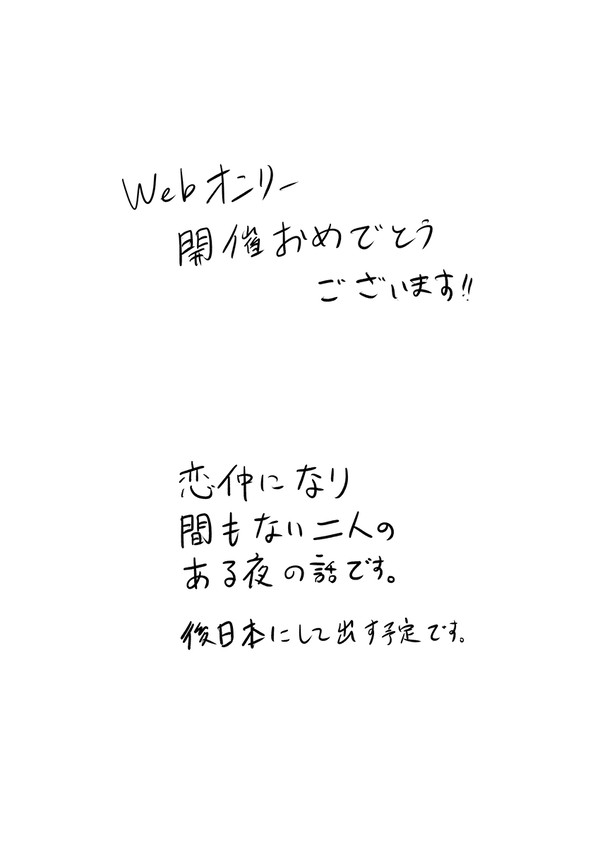 Webオンリー
開催おめでとう
ございます!!
恋仲になり
間もない二人の
ある夜の話です。
後日本にして出す予定です。